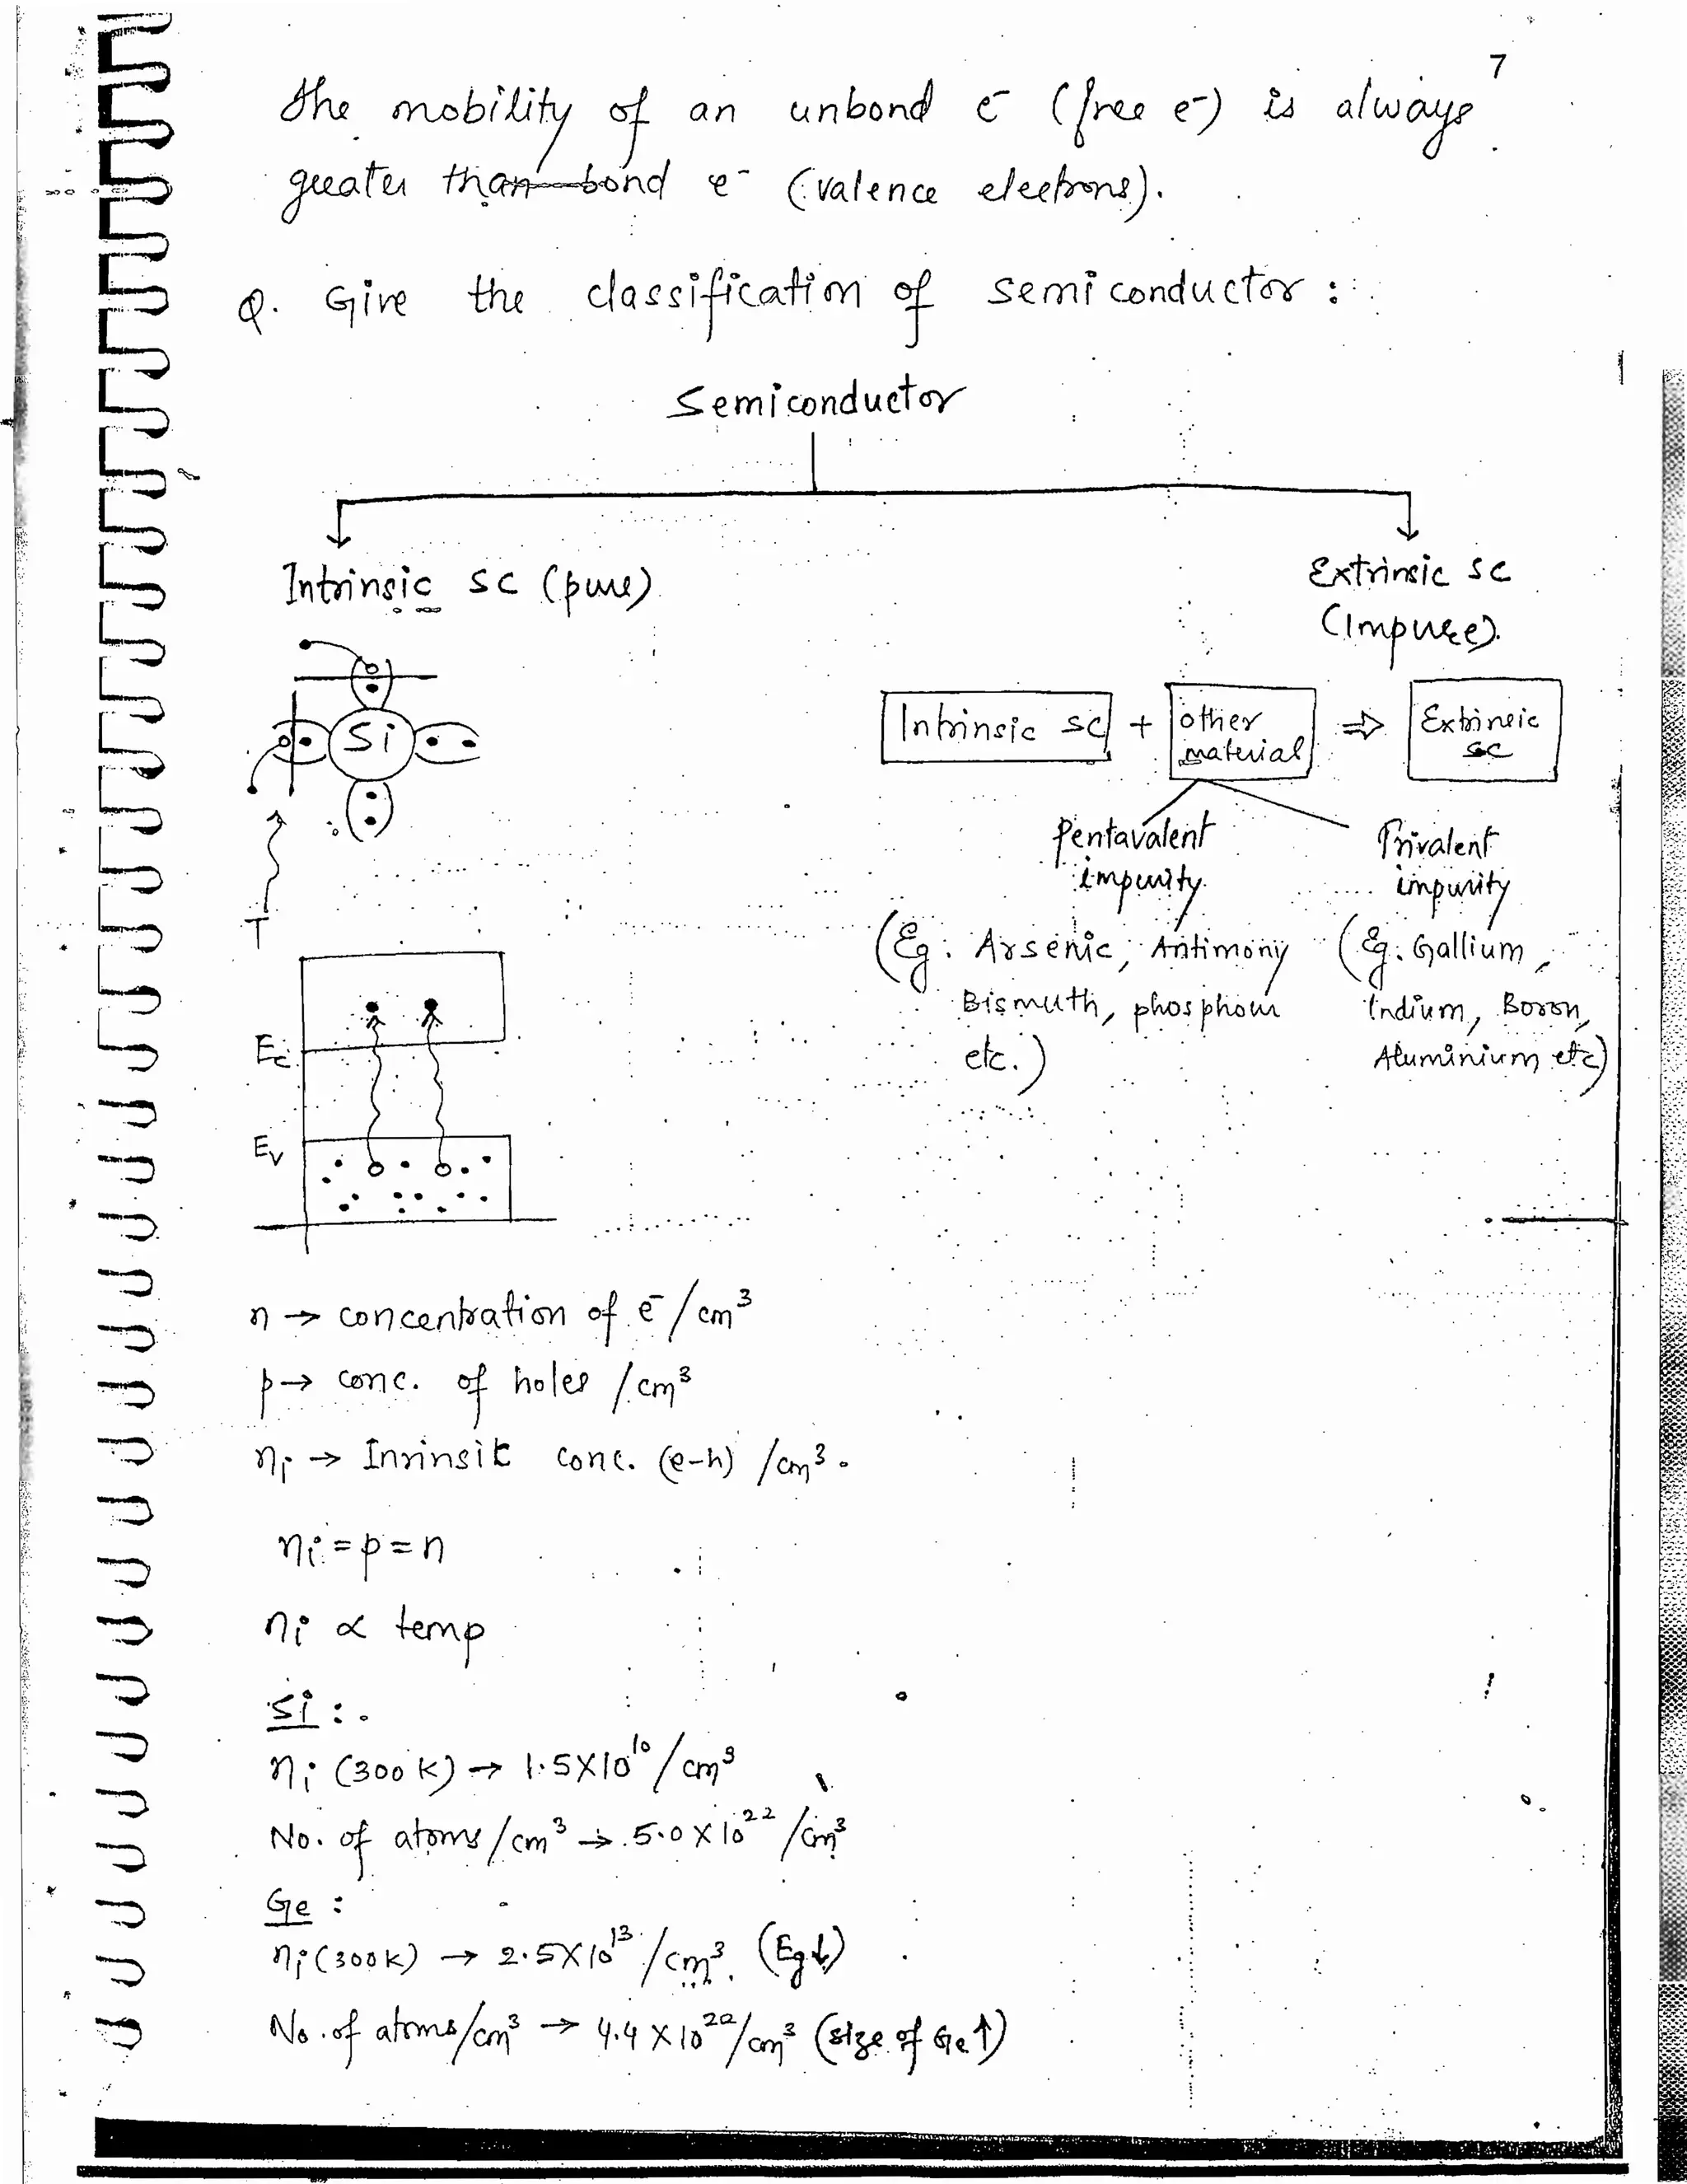 7
The mobility of an unbond e⁻ (free e⁻) is always
greater than bond e⁻ (valence electrons).
Q. Give the classification of semiconductor :
Semiconductor
Intrinsic SC (pure)
Extrinsic SC
(Impure)
Si
T
Intrinsic SC + other material ⇒ Extrinsic SC
Pentavalent
impurity
(Eg. Arsenic, Antimony
Bismuth, phosphour
etc.)
Trivalent
impurity
(Eg. Gallium,
Indium, Boron,
Aluminium etc)
Ec
Ev
n → concentration of e⁻ /cm³
p → conc. of holes /cm³
nᵢ → Inrinsic conc. (e-h) /cm³.
nᵢ = p = n
nᵢ ∝ temp
Si :
nᵢ (300 K) → 1.5X10¹⁰ /cm³
No. of atoms /cm³ → 5.0 X 10²² /cm³
Ge :
nᵢ (300K) → 2.5X10¹³ /cm³. (Eg↓)
No. of atoms/cm³ → 4.4 X 10²² /cm³ (size of Ge↑)